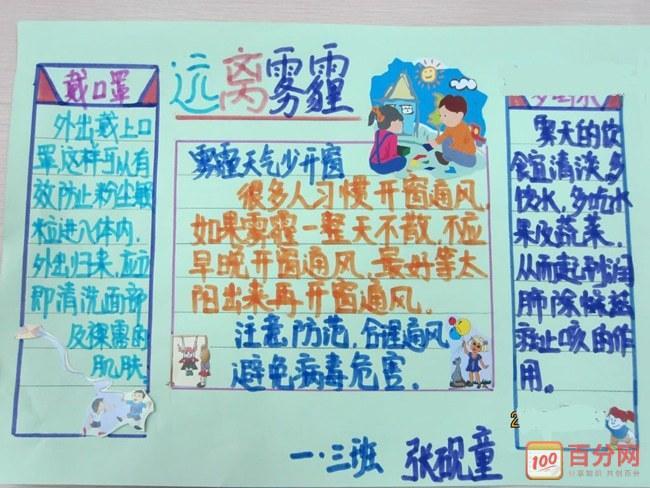 远离雾霾
戴口罩
外出戴上口
罩,这样可以有
效防止粉尘颗
粒进入体内.
外出归来,应立
即清洗面部
及裸露的
肌肤.
雾霾天气少开窗
很多人习惯开窗通风,
如果雾霾一整天不散,不应
早晚开窗通风,最好等太
阳出来再开窗通风.
注意防范,合理通风
避免病毒危害.
雾天的饮
食宜清淡,多
饮水,多吃水
果及蔬菜,
从而起到润
肺除燥
止咳的作
用.
一·三班 张砚童
100 百分网